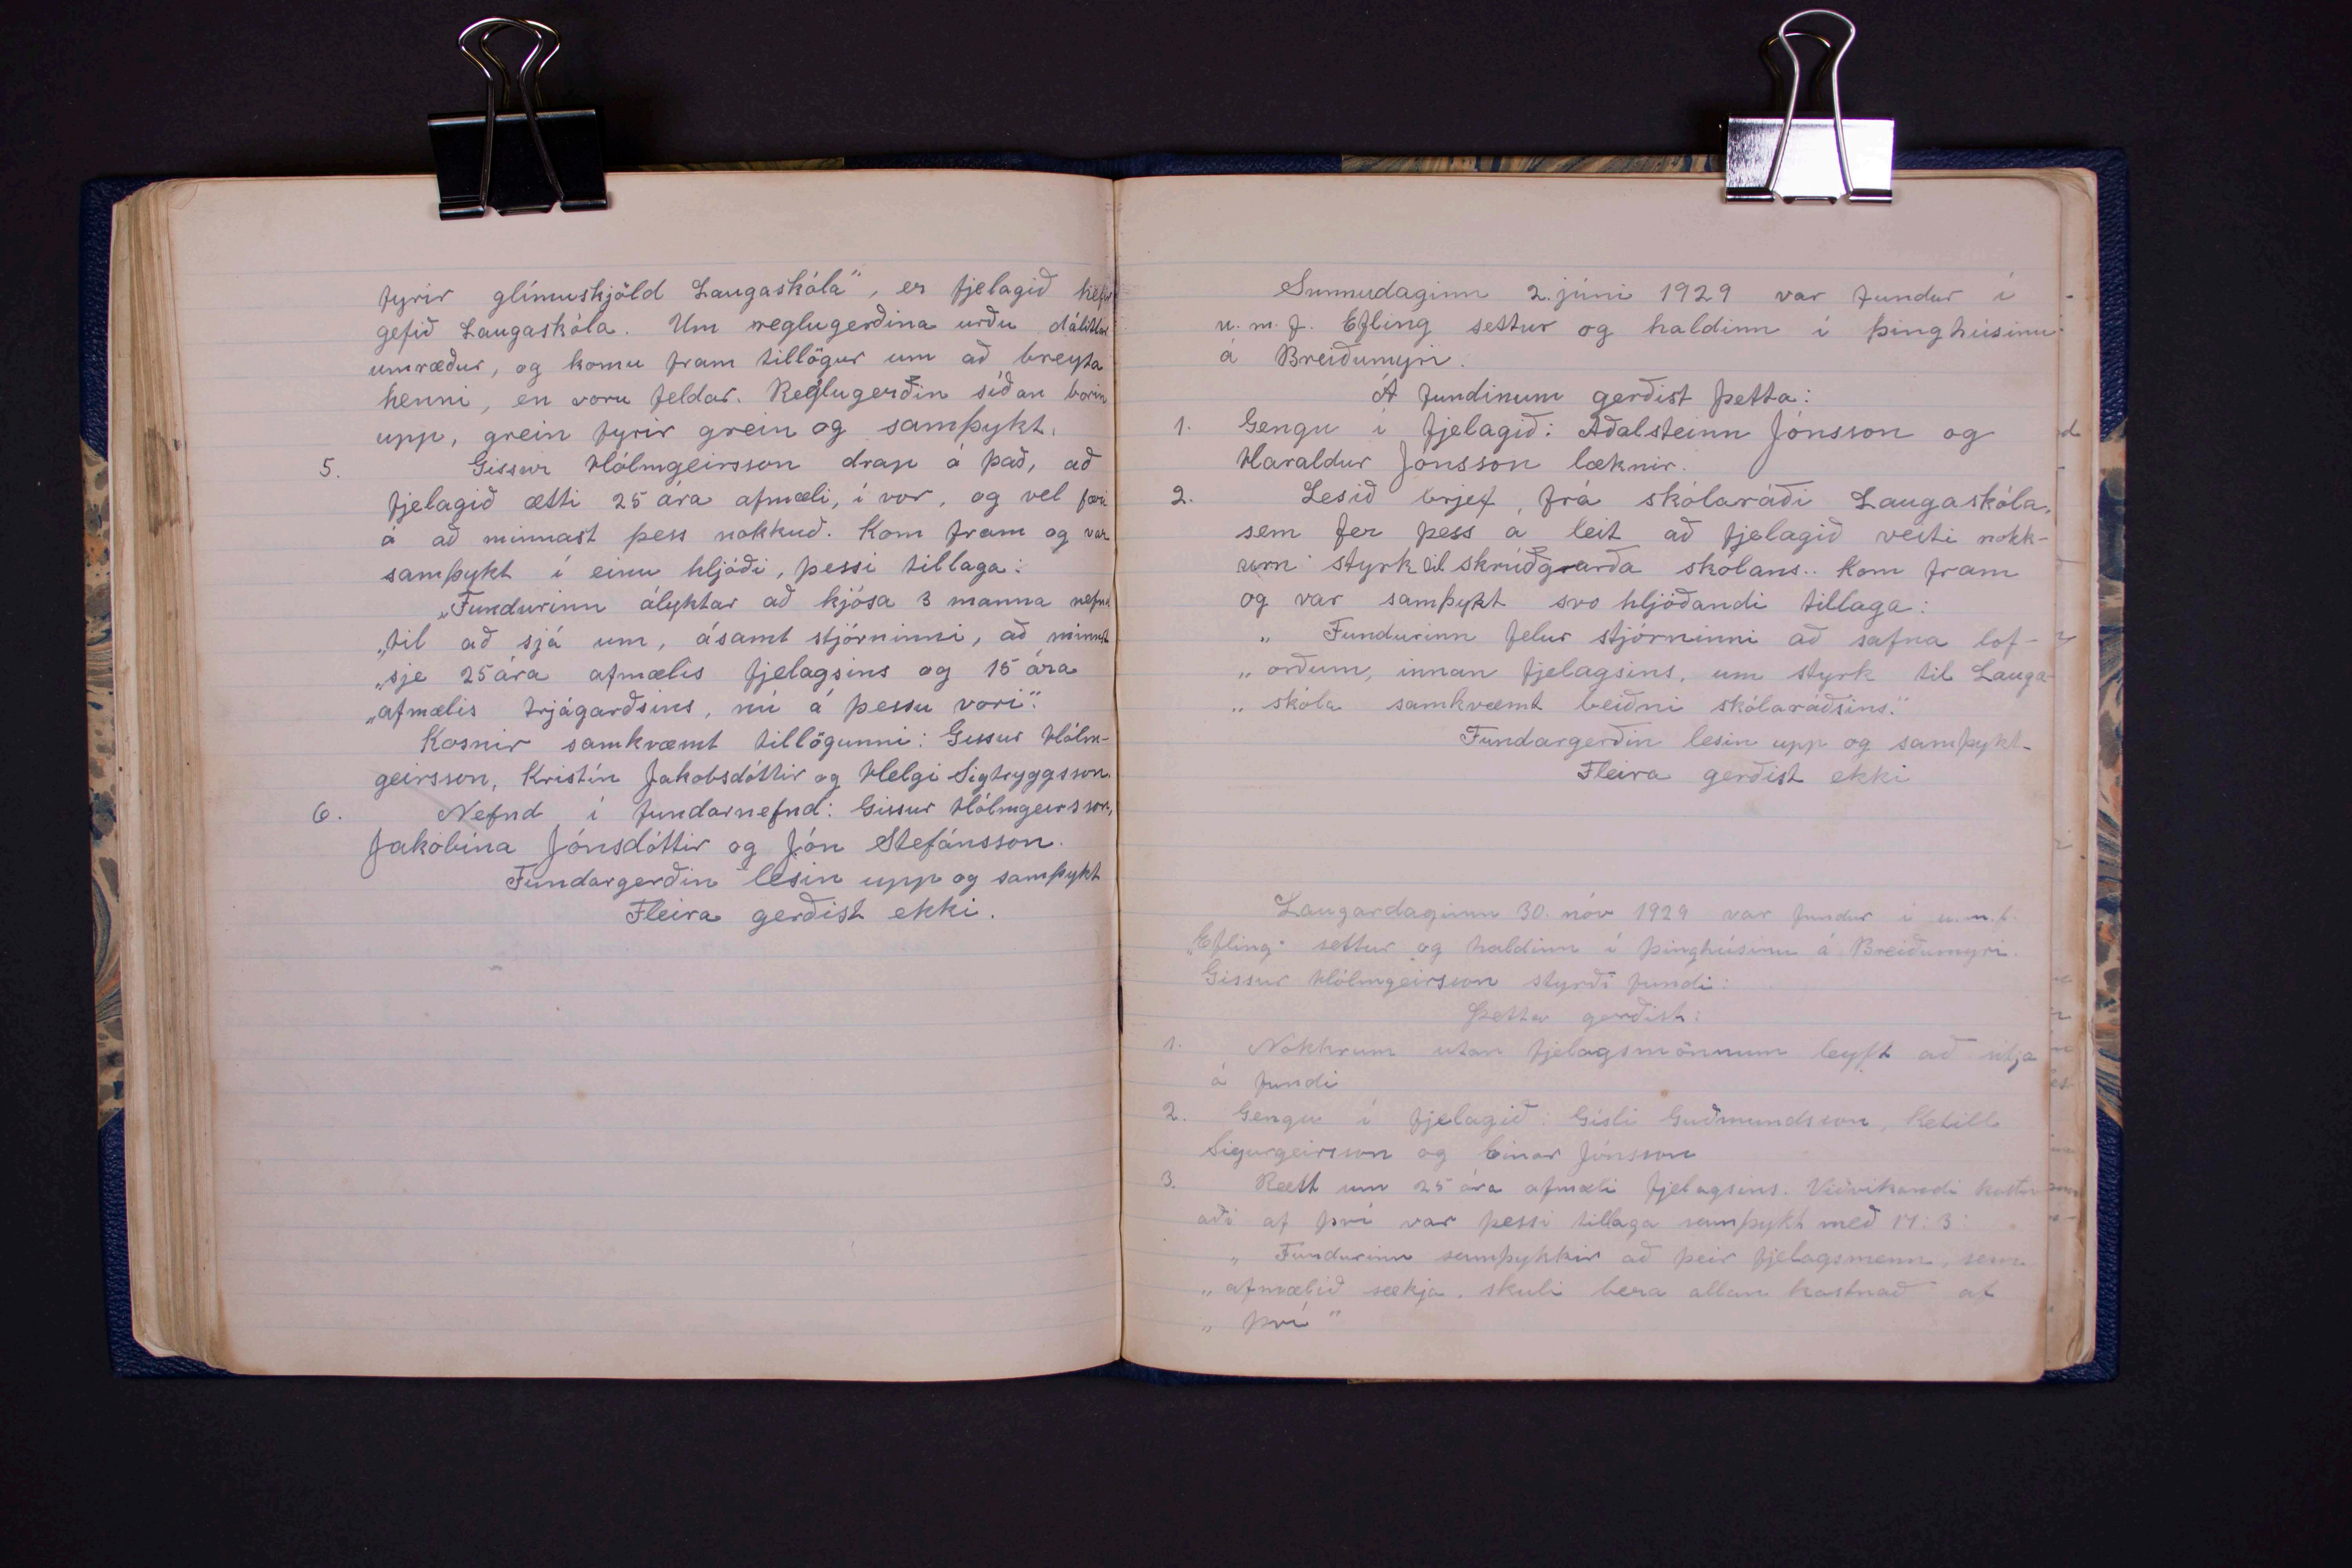 fyrir glímuskjöld Laugaskóla", er fjelagið hefur
gefið Laugaskóla. Um reglugerðina urðu dálitlar
umræður, og komu fram tillögur um að breyta
henni, en voru feldar. Reglugerðin síðan borin
upp, grein fyrir grein og samþykt.
5. Gissur Hólmgeirsson drap á það, að
fjelagið ætti 25 ára afmæli, í vor, og vel færi
á að minnast þess nokkuð. Kom fram og var
samþykt í einu hljóði, þessi tillaga:
„Fundurinn ályktar að kjósa 3 manna nefnd
„til að sjá um, ásamt stjórninni, að minnst
„sje 25 ára afmælis fjelagsins og 15 ára
„afmælis trjágarðsins, nú á þessu vori".
Kosnir samkvæmt tillögunni: Gissur Hólm-
geirsson, Kristín Jakobsdóttir og Helgi Sigtryggsson.
6. Nefnd í fundarnefnd: Gissur Hólmgeirsson,
Jakobína Jónsdóttir og Jón Stefánsson.
Fundargerðin lesin upp og samþykt
Fleira gerðist ekki.
Sunnudaginn 2. júní 1929 var fundur í
u. m. f. Efling settur og haldinn í þinghúsinu
á Breiðumýri.
Á fundinum gerðist þetta:
1. Gengu í fjelagið: Aðalsteinn Jónsson og
Haraldur Jónsson læknir.
2. Lesið brjef, frá skólaráði Laugaskóla,
sem fer þess á leit að fjelagið veiti nokk-
urn styrk til skrúðgarða skólans.. Kom fram
og var samþykt svo hljóðandi tillaga:
„ Fundurinn felur stjórninni að safna lof-
„ orðum, innan fjelagsins, um styrk til Lauga-
„ skóla samkvæmt beiðni skólaráðsins."
Fundargerðin lesin upp og samþykt-
Fleira gerðist ekki
Laugardaginn 30. nóv 1929 var fundur í u.m.f.
„Efling" settur og haldinn í þinghúsinu á Breiðumýri.
Gissur Hólmgeirsson stýrði fundi:
Þetta gerðist:
1. Nokkrum utan fjelagsmönnum leyft að sitja
á fundi
2. Gengu í fjelagið: Gísli Guðmundsson, Ketill
Sigurgeirsson og Einar Jónsson
3. Rætt um 25 ára afmæli fjelagsins. Viðvíkandi kostn
aði af því var þessi tillaga samþykt með 17:3:
„ Fundurinn samþykkir að þeir fjelagsmenn, sem
„ afmælið sækja, skuli bera allan kostnað af
„ því"